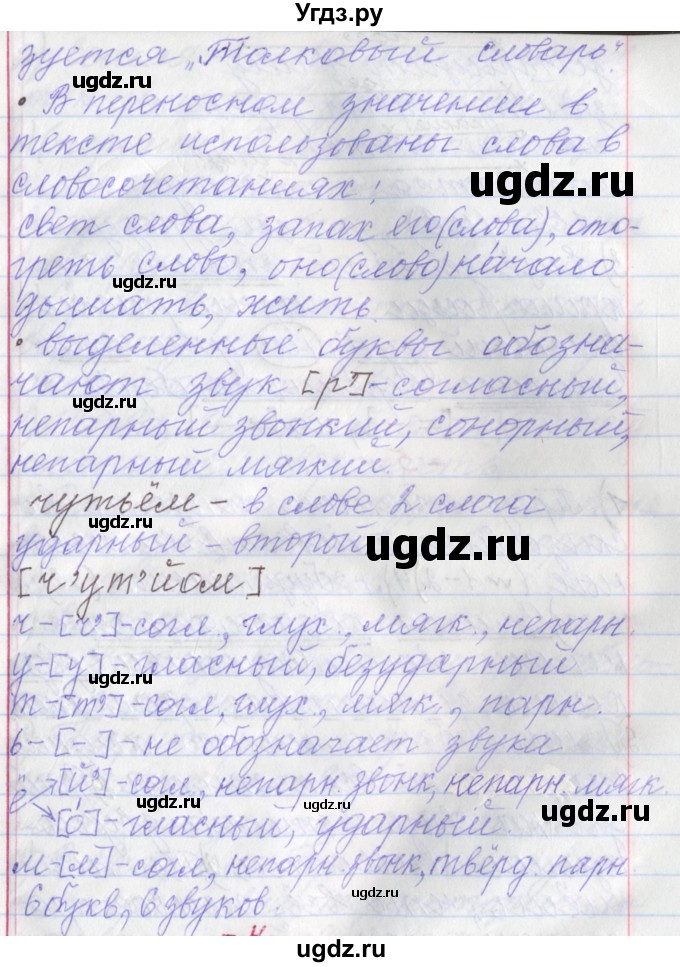 Угдз.ру
зуется „Толковый словарь“
• В переносном значении в
тексте использованы слова в
словосочетаниях:
свет слова, запах его(слова), ото-
греть слово, оно(слово) на́чало
дышать, жить.
• выделенные буквы обозна-
чают звук [р’]-согласный,
непарный звонкий, сонорный,
непарный мягкий.
чутьём – в слове 2 слога
ударный – второй
[ч’ут’йом]
ч-[ч’]-согл., глух., мягк., непарн.
у-[у]-гласный, безударный
т-[т’]-согл, глух., мягк., парн.
ь-[-]-не обозначает звука
ё [й’]-согл., непарн. звонк, непарн. мягк.
[о́]-гласный, ударный.
м-[м]-согл, непарн. звонк, твёрд. парн.
6 букв, 6 звуков.
ugdz.ru
ugdz.ru
ugdz.ru
ugdz.ru
ugdz.ru
ugdz.ru
ugdz.ru
ugdz.ru
ugdz.ru
ugdz.ru
ugdz.ru
ugdz.ru